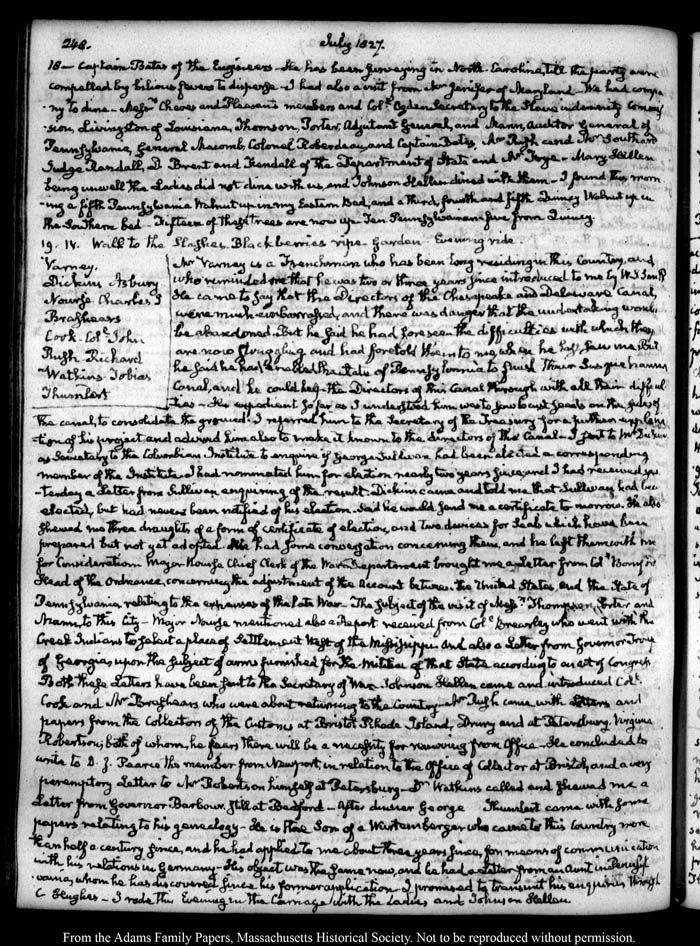 248.
July 1827.
18— Captain Bates of the Engineers— He has been surveying in North-Carolina, till the party were
compelled by bilious fevers to disperse— I had also a visit from Mr Jenifer of Maryland. We had compa-
-ny to dine. Messrs Cheves and Pleasants members and Col. Ogden Secretary to the Slave indemnity Commis
-sion, Livingston of Louisiana, Thomson, Porter, Adjutant General, and Mann, Auditor General of
Pennsylvania, General Macomb, Colonel Roberdeau, and Captain Bates, Mr Rush and Mr Southard
Judge Randall, D. Brent and Kendall of the Department of State and Mr Frye— Mary Hellen
being unwell the Ladies did not dine with us, and Johnson Hellen dined with them— I found this morn
-ing a fifth Pennsylvania Walnut up in my Eastern Bed, and a third, fourth and fifth Quincy Walnut up in
the Southern bed— Fifteen of these trees are now up. Ten Pennsylvanian five from Quincy.
19. IV. Walk to the Slasher. Black berries ripe. Garden. Evening ride.
Varney.
Dickins Asbury
Nourse. Charles J
Brashears
Cook. Col. John
Rush Richard
Watkins Tobias
Thumlert
Mr Varney is a Frenchman who has been long residing in this Country, and
who reminded me that he was two or three years since introduced to me by W. S. Smith
He came to say that the Directors of the Chesapeake and Delaware Canal,
were much embarrassed, and there was danger that the undertaking would
be abandoned. But he said he had foreseen the difficulties with which they
are now struggling and had foretold them to me when he last saw me. But
he said he had enabled the State of Pennsylvania to finish their Susquehanna
Canal, and he could help the Directors of this Canal through with all their difficul
-ties— His expedient so far as I understood him was to sow locust seeds on the sides of
the canal, to consolidate the ground. I referred him to the Secretary of the Treasury for a further explana
-tion of his project and advised him also to make it known to the directors of the Canal. I sent to Mr Dickins
as Secretary to the Columbian Institute to enquire if George Sullivan had been elected a corresponding
member of the Institute. I had nominated him for election nearly two years since, and I had received yes
-terday a Letter from Sullivan enquiring of the result. Dickins came and told me that Sullivan had been
elected, but had never been notified of his election. Said he would send me a certificate to morrow. He also
shewed me three draughts of a form of certificate of election, and two devices for Seals which have been
prepared but not yet adopted. We had some conversation concerning them, and he left them with me
for Consideration. Major Nourse Chief Clerk of the War Department brought me a Letter from Col. Bomford
Head of the Ordnance, concerning the adjustment of the Account between the United States, and the State of
Pennsylvania relating to the expenses of the late War— The subject of the visit of Messrs Thompson, Porter and
Mann, to this City— Major Nourse mentioned also a Report received from Col. Brearley who went with the
Creek Indians to select a place of Settlement West of the Missisippi. And also a Letter from Governor Troup
of Georgia upon the subject of arms furnished for the Militia of that State according to an act of Congress
Both these Letters have been sent to the Secretary of War. Johnson Hellen came and introduced Col.
Cook and Mr Brashears who were about returning to the Country— Mr Rush came with Letters and
papers from the Collectors of the Customs at Bristol Rhode Island, Drury and at Petersburg, Virginia
Robertson; both of whom, he fears there will be a necessity for removing from Office— He concluded to
write to D. J. Pearce the member from Newport, in relation to the Office of Collector at Bristol, and a very
peremptory Letter to Mr Robertson himself at Petersburg— Dr Watkins called and shewed me a
Letter from Governor Barbour, still at Bedford— After dinner George Thumlert came with some
papers relating to his genealogy— He is the Son of a Wurtemberger who came to this Country more
than half a century since, and he had applied to me about three years since, for means of communication
with his relations in Germany— His object was the same now, and he had a Letter from an Aunt in Pennsyl
-vania, whom he has discovered since his former application. I promised to transmit his enquiries through
C Hughes— I rode this Evening in the Carriage with the Ladies and Johnson Hellen.
From the Adams Family Papers, Massachusetts Historical Society. Not to be reproduced without permission.